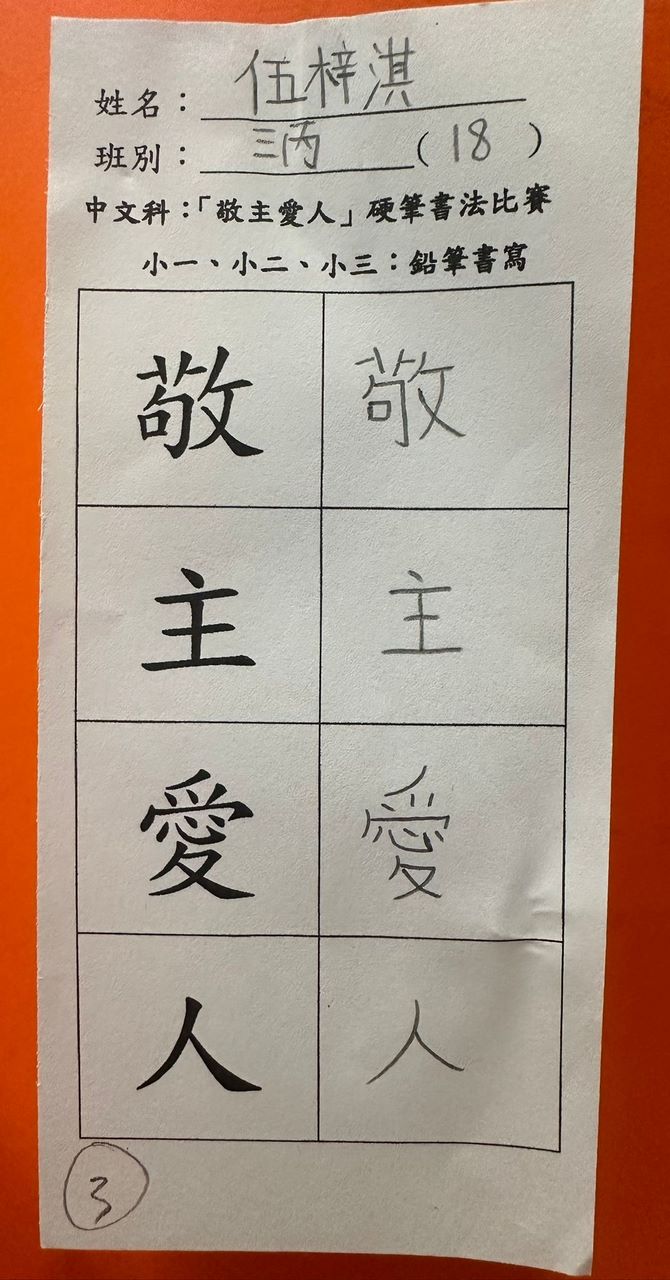 姓名：伍梓淇
班別：三丙（18）
中文科：「敬主愛人」硬筆書法比賽
小一、小二、小三：鉛筆書寫
敬 敬
主 主
愛 愛
人 人
3